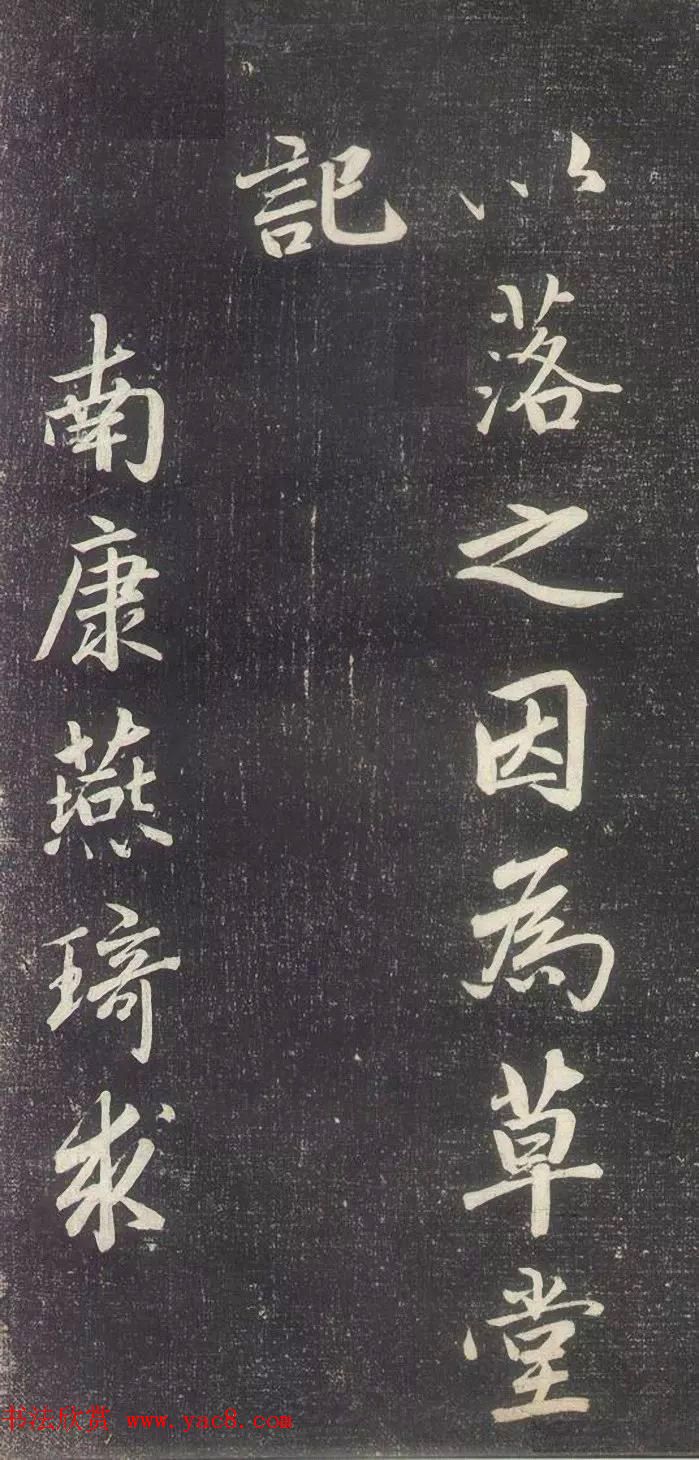 以落之因為草堂
記
南康燕琦求
书法欣赏 www.yac8.com